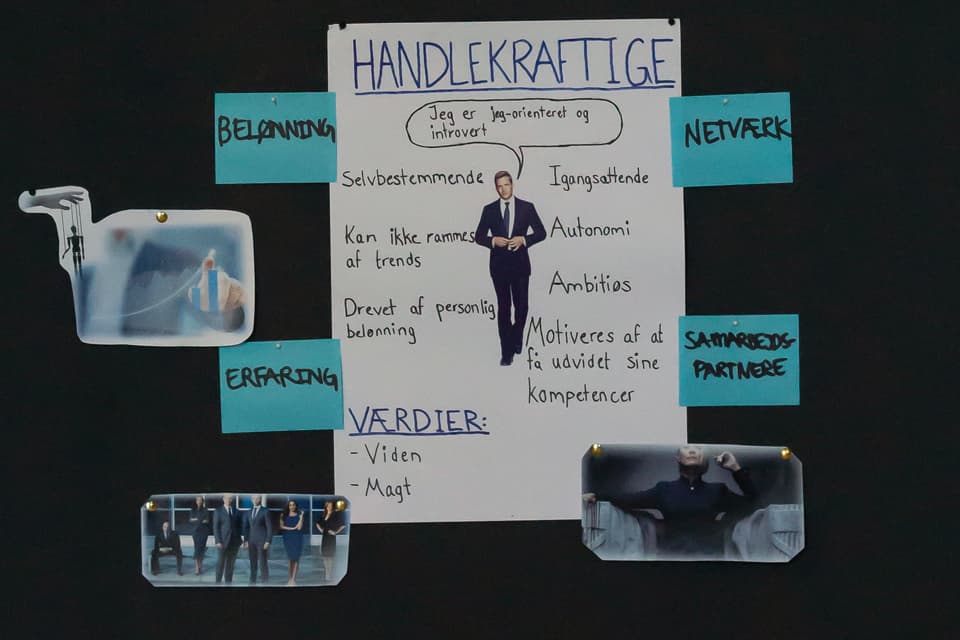 HANDLEKRAFTIGE
BELØNNING
NETVÆRK
Jeg er jeg-orienteret og
introvert
Selvbestemmende
Igangsættende
Kan ikke rammes
af trends
Autonomi
Ambitiøs
Drevet af personlig
belønning
Motiveres af at
få udvidet sine
kompetencer
ERFARING
SAMARBEJDS-
PARTNERE
VÆRDIER:
- Viden
- Magt